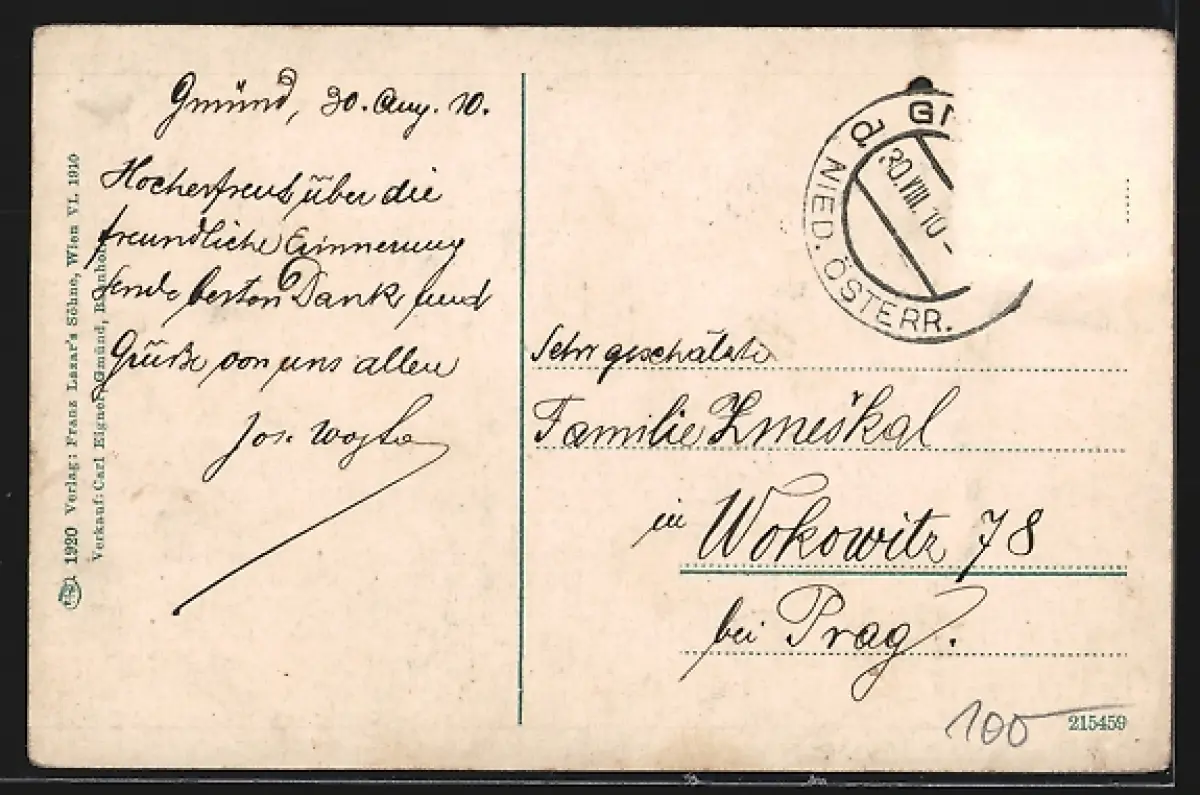 Gmünd, 30. Aug. 10.
Hocherfreut über die
freundliche Erinnerung
sende besten Dank und
Grüße von uns allen
Jos.
Sehr geschätzte
Familie Zmeškal
in Wokowitz 78
bei Prag.
GM
30.VIII.10-
d NIED. ÖSTERR.
1920 Verlag: Franz Lazar's Söhne, Wien VI. 1910
Verkauf: Carl Eigner, Gmünd, Bahnhof.
100
215459